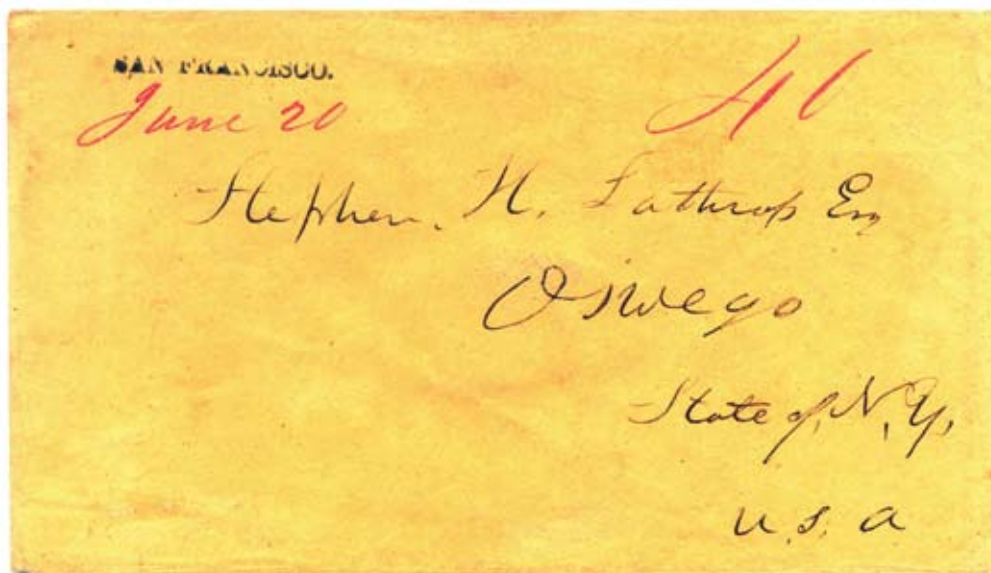 SAN FRANCISCO.
June 20
40
Stephen. H. Lathrop Esq
Oswego
State of N. Y.
U. S. A